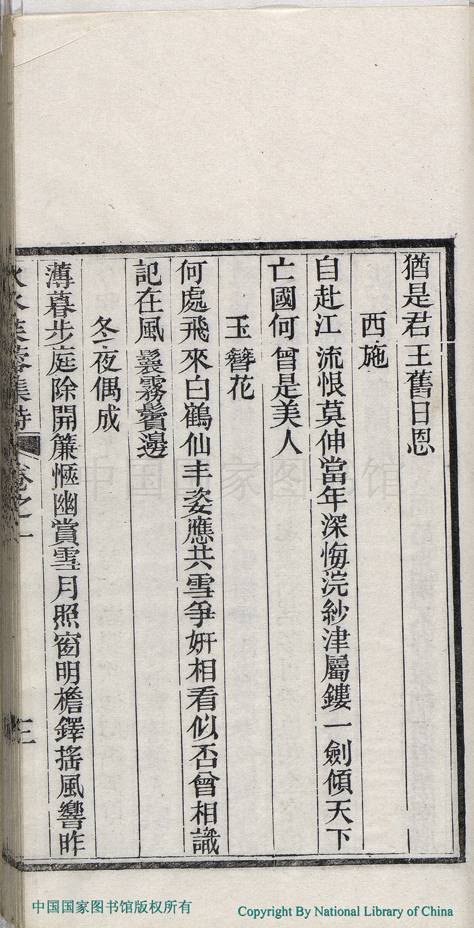 猶是君王舊日恩
西施
自赴江流恨莫伸當年深悔浣紗津屬鏤一劍傾天下
亡國何曾是美人
玉簪花
何處飛來白鶴仙丰姿應共雪爭妍相看似否曾相識
記在風鬟霧鬢邊
冬夜偶成
薄暮步庭除開簾愜幽賞雪月照窗明檐鐸搖風響昨
芙蓉集詩 卷之一 三
中国国家图书馆
中国国家图书馆版权所有
Copyright By National Library of China